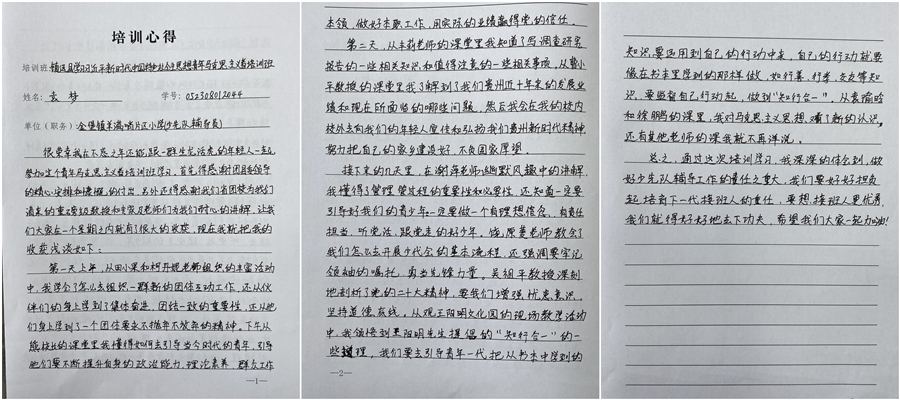 培训心得
培训班:镇远县学习习近平新时代中国特色社会主义思想青年马克思主义者培训班
姓名: 玄梦 学号:052308012044
单位(职务):金堡镇羊满哨片区小学(少先队辅导员)
很荣幸我在不惑之年还能跟一群生龙活虎的年轻人一起
参加这个青年马克思主义者培训班学习,首先得感谢团县委领导
的精心安排和慷慨的付出,另外还得感谢我们省团校为我们
请来的重磅级教授和专家及老师们为我们耐心的讲解,让我
们大家在一个星期之内就有了很大的收获。现在我就把我的
收获浅谈如下:
第一天上午,从田小果和柯开妮老师组织的丰富活动
中,我学会了怎么去组织一群新的团体互动工作,还从伙
伴们的身上学到了集体奋进,团结一致的重要性,还从他
们身上学到了一个团体要永不掉牟不放弃的精神。下午从
熊校长的课堂里我懂得如何去引导当今时代的青年,引导
他们要不断提升自身的政治能力、理论素养、群众工作
—1—
本领,做好本职工作,用实际的业绩赢得党的信任。
第二天,从米莉老师的课堂里我知道了写调查研究
报告的一些相关知识和值得注意的一些相关事项,从曹小
平教授的课堂里我了解到了我们贵州近十年来的发展业
绩和现在所面临的哪些问题,然后我会在我的校内
校外去向我们的年轻人宣传和弘扬我们贵州新时代精神
努力把自己的家乡建设好,不负国家厚望。
接下来的几天里,在谢萍老师幽默风趣中的讲解,
我懂得了管理管过程的重要性和必要性,还知道一定要
引导好我们的青少年一定要做一个有理想信念、有责任
担当、听党话、跟党走的好少年。饶原蔓老师教会了
我们怎么去开展少代会的基本流程,还强调要牢记
领袖的嘱托,勇当先锋力量。吴祖平教授深刻
地剖析了党的二十大精神,要我们增强忧患意识,
坚持道德底线。从观王阳明文化园的现场教学活动
中,我领悟到王阳明先生提倡的“知行合一”的一
些道理,我们要去引导青年一代,把从书本中学到的
—2—
知识,要运用到自己的行动中来,自己的行动就要
像在书本里学到的那样做,如行善、行孝、交友等知
识,要监督自己行动起,做到“知行合一”。从袁瑜晗
和徐鹏的课里,我对马克思主义思想有了新的认识,
还有其他老师的课我就不再详说。
总之,通过这次培训学习,我深深的体会到,做
好少先队辅导工作的责任之重大,我们要好好担负
起培育下一代接班人的责任,要想接班人更优秀,
我们就得好好地去下功夫,希望我们大家一起加油!